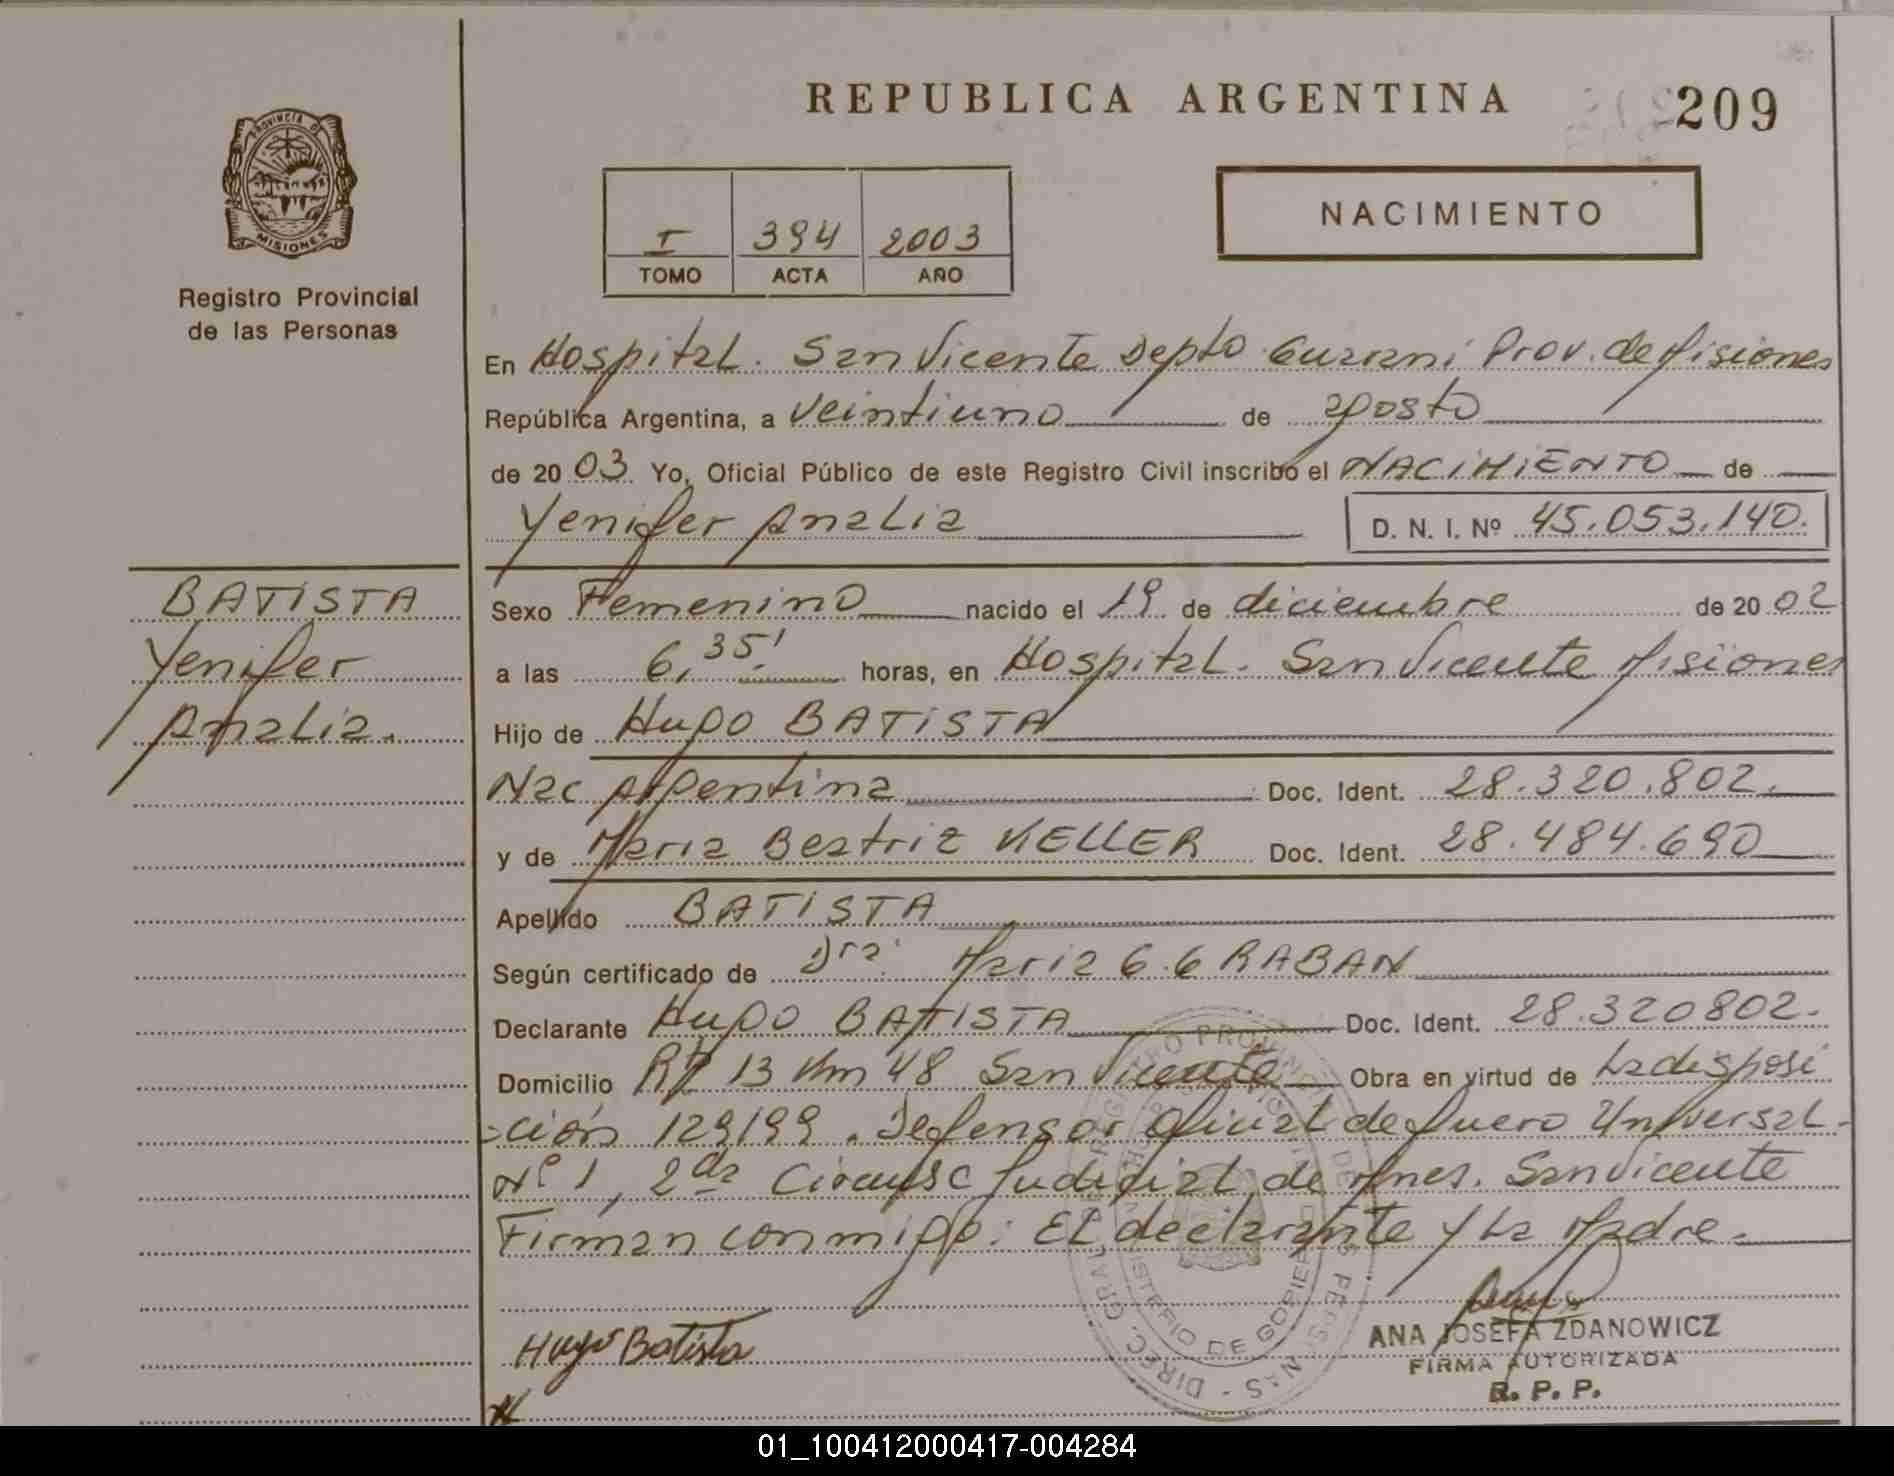 REPUBLICA ARGENTINA
209
PROVINCIA DE
MISIONES
Registro Provincial
de las Personas
I 394 2003
TOMO ACTA AÑO
NACIMIENTO
En Hospital. San Vicente Depto Guarani Prov. de Misiones
República Argentina, a veintiuno de agosto
de 20 03. Yo, Oficial Público de este Registro Civil inscribo el NACIMIENTO de
Yenifer Analia D. N. I. Nº 45.053.140.
BATISTA
Yenifer
Analia.
Sexo Femenino nacido el 19 de diciembre de 20 02
a las 6,35' horas, en Hospital. San Vicente Misiones
Hijo de Hugo BATISTA
Nac Argentina Doc. Ident. 28.320.802.
y de Maria Beatriz KELLER Doc. Ident. 28.484.690
Apellido BATISTA
Según certificado de Dra. Maria G. GRABAN
Declarante Hugo BATISTA Doc. Ident. 28.320802.
Domicilio 13 Km 48 San Vicente Obra en virtud de La disposi
-ción 129/99. Defensor Oficial de fuero Universal.
Nº 1, 2da Circunsc Judicial, de Mnes. San Vicente
Firman conmigo: El declarante y La Madre.
Hugo Batista
ANA JOSEFA ZDANOWICZ
FIRMA AUTORIZADA
R. P. P.
01_100412000417-004284